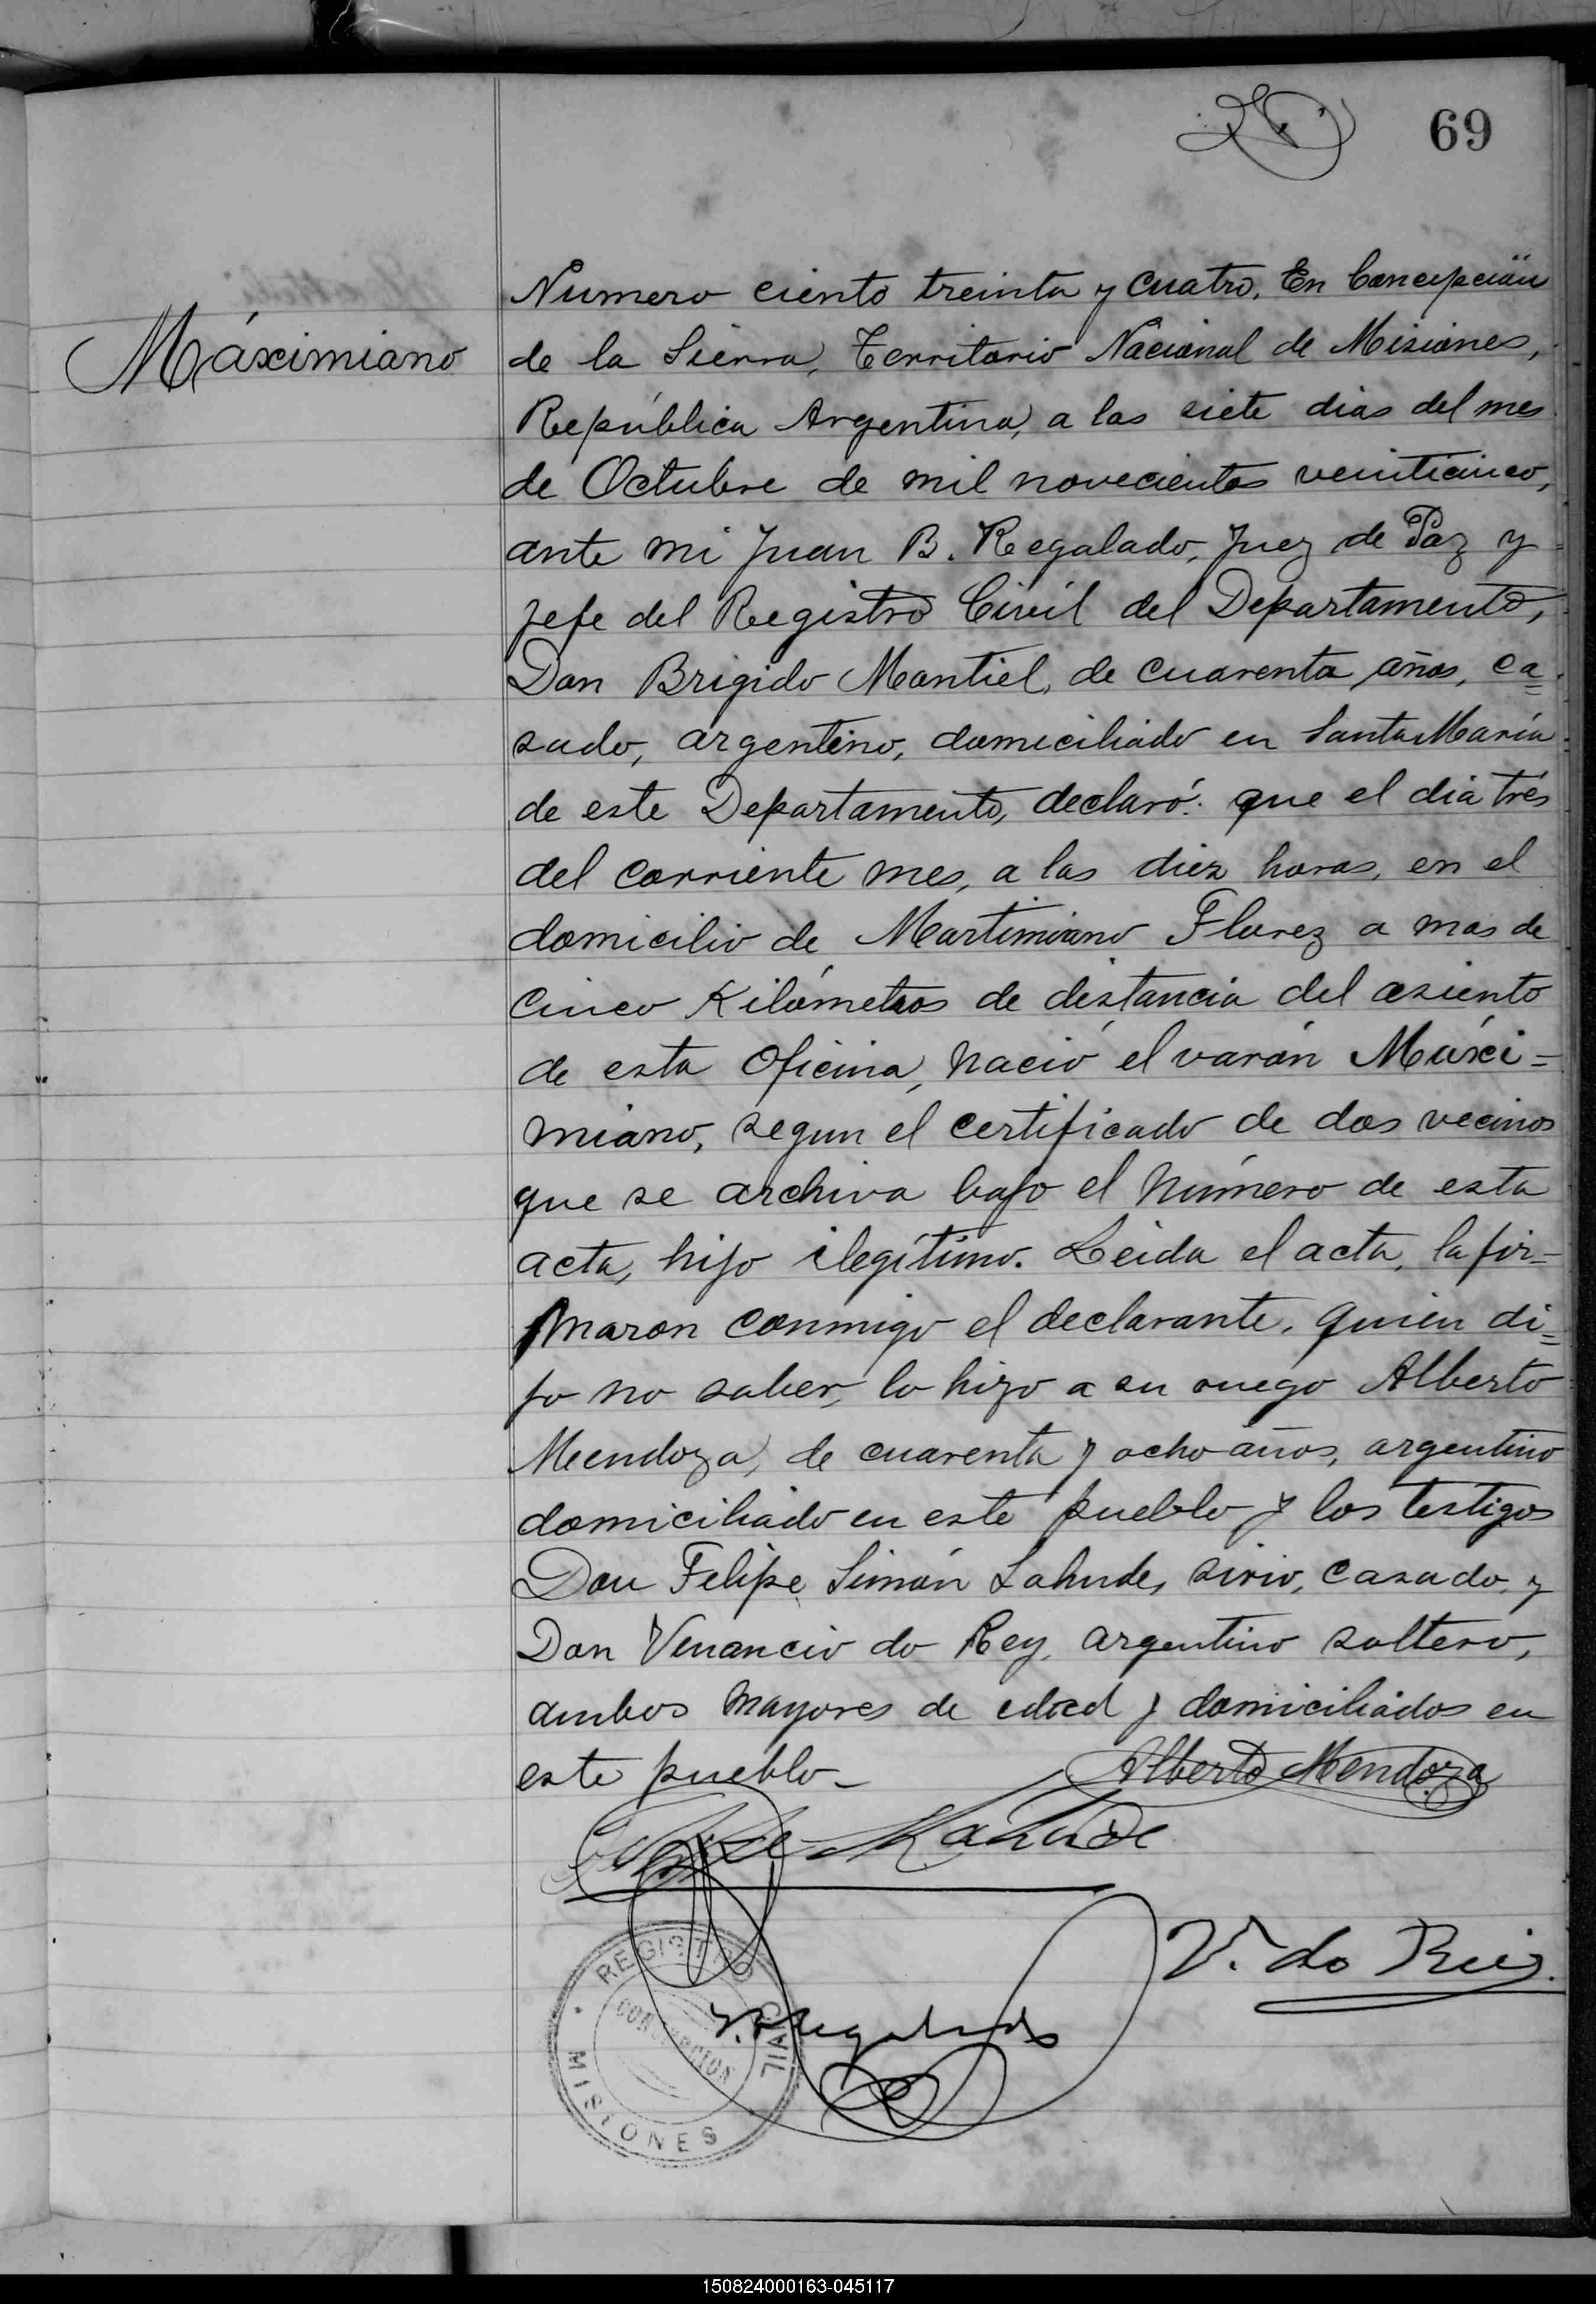 69
Máximiano
Numero ciento treinta y cuatro. En Concepción
de la Sierra, Territorio Nacional de Misiones,
República Argentina, a los siete dias del mes
de Octubre de mil novecientos veinticinco,
ante mi Juan B. Regalado, Juez de Paz y
Jefe del Registro Civil del Departamento,
Don Brigido Montiel, de cuarenta años, ca=
sado, argentino, domiciliado en Santa María
de este Departamento, declaró: que el dia tres
del corriente mes, a las diez horas, en el
domicilio de Martimiano Florez a mas de
cinco Kilómetros de distancia del asiento
de esta Oficina, nació el varón Máxi=
miano, segun el certificado de dos vecinos
que se archiva bajo el número de esta
acta, hijo ilegítimo. Leida el acta, la fir=
maron conmigo el declarante, quien di=
jo no saber, lo hizo a su ruego Alberto
Mendoza, de cuarenta y ocho años, argentino
domiciliado en este pueblo y los testigos
Don Felipe Simón Lahude, sirio, casado, y
Don Venancio do Rey, argentino soltero,
ambos mayores de edad y domiciliados en
este pueblo_
Alberto Mendoza
V. do Rey
REGISTRO CIVIL
CONCEPCION
MISIONES
150824000163-045117